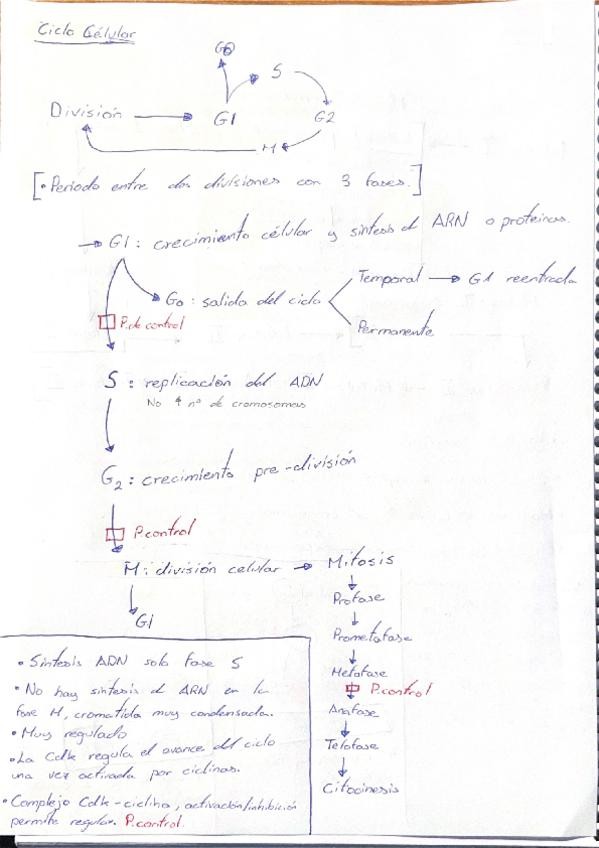 Ciclo Célular
G0
S
División
G1
G2
M
[• Período entre dos divisiones con 3 fases.]
→ G1: crecimiento célular y síntesis d ARN o proteinas.
G0: salida del ciclo
Temporal → G1 reentrada
Permanente
P. de control
S: replicación del ADN
No ↑ nº de cromosomas
G2: crecimiento pre-división
P.control
M: división celular → Mitosis
G1
Profase
Prometafase
Metafase
P.control
Anafase
Telofase
Citocinesis
• Síntesis ADN solo fase S
• No hay síntesis d ARN en la
fase M, cromatida muy condensada.
• Muy regulado
• La Cdk regula el avance del ciclo
una vez activada por ciclinas.
• Complejo Cdk-ciclina, activación/inhibición
permite regular. P.control.